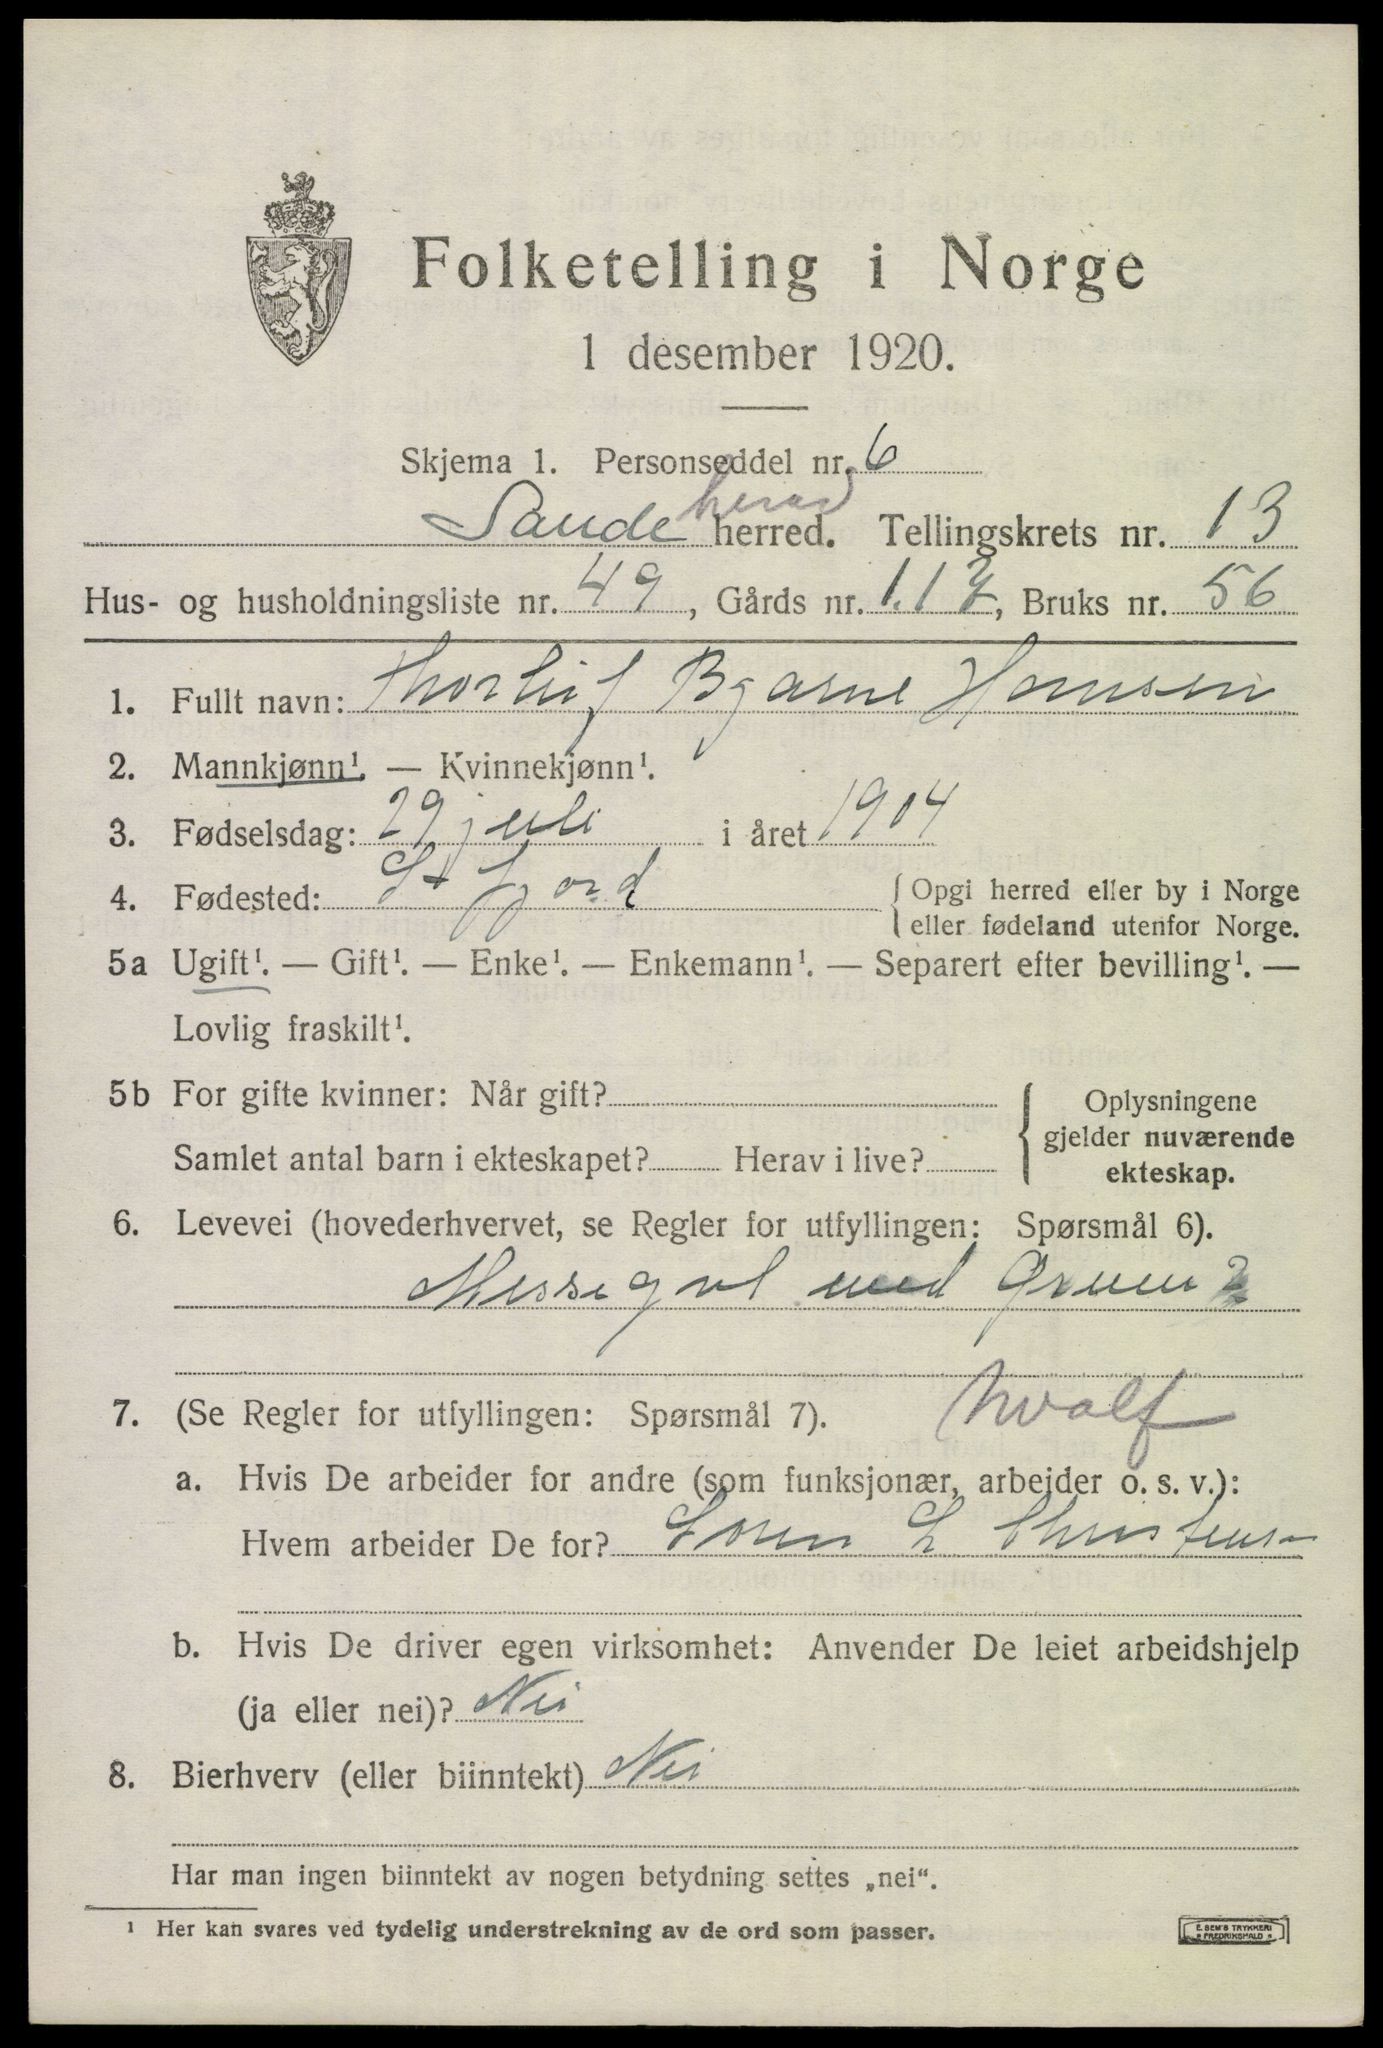 Folketelling i Norge
1 desember 1920.
Skjema 1. Personseddel nr. 6
herad
Sande herred. Tellingskrets nr. 13
Hus- og husholdningsliste nr. 49, Gårds nr. 112, Bruks nr. 56
1. Fullt navn: Thorleif Bjarne Hansen
2. Mannkjønn¹. — Kvinnekjønn¹.
3. Fødselsdag: 29 juli i året 1904
4. Fødested: St fjord { Opgi herred eller by i Norge
eller fødeland utenfor Norge.
5a Ugift¹. — Gift¹. — Enke¹. — Enkemann¹. — Separert efter bevilling¹. —
Lovlig fraskilt¹.
5b For gifte kvinner: Når gift? { Oplysningene
gjelder nuværende
Samlet antal barn i ekteskapet? Herav i live?
ekteskap.
6. Levevei (hovederhvervet, se Regler for utfyllingen: Spørsmål 6).
Messegut med Ørnen 2
hvalf
7. (Se Regler for utfyllingen: Spørsmål 7).
a. Hvis De arbeider for andre (som funksjonær, arbeider o. s. v.):
Hvem arbeider De for? Søren L Christensen
b. Hvis De driver egen virksomhet: Anvender De leiet arbeidshjelp
(ja eller nei)? Nei
8. Bierhverv (eller biinntekt) Nei
Har man ingen biinntekt av nogen betydning settes „nei“.
¹ Her kan svares ved tydelig understrekning av de ord som passer.
E. SEM'S TRYKKERI
FREDRIKSHALD